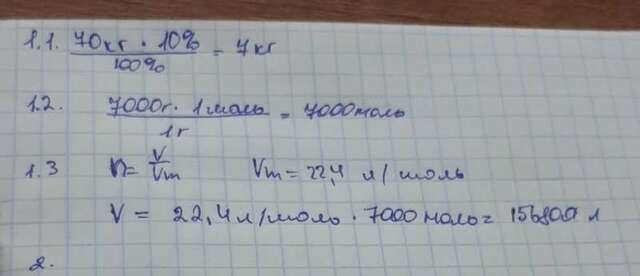 1.1. 70кг · 10% / 100% = 7кг
1.2. 7000г · 1моль / 1г = 7000моль
1.3 n = V / Vm Vm = 22,4 л/моль
V = 22,4л/моль · 7000 моль = 156800 л
2.